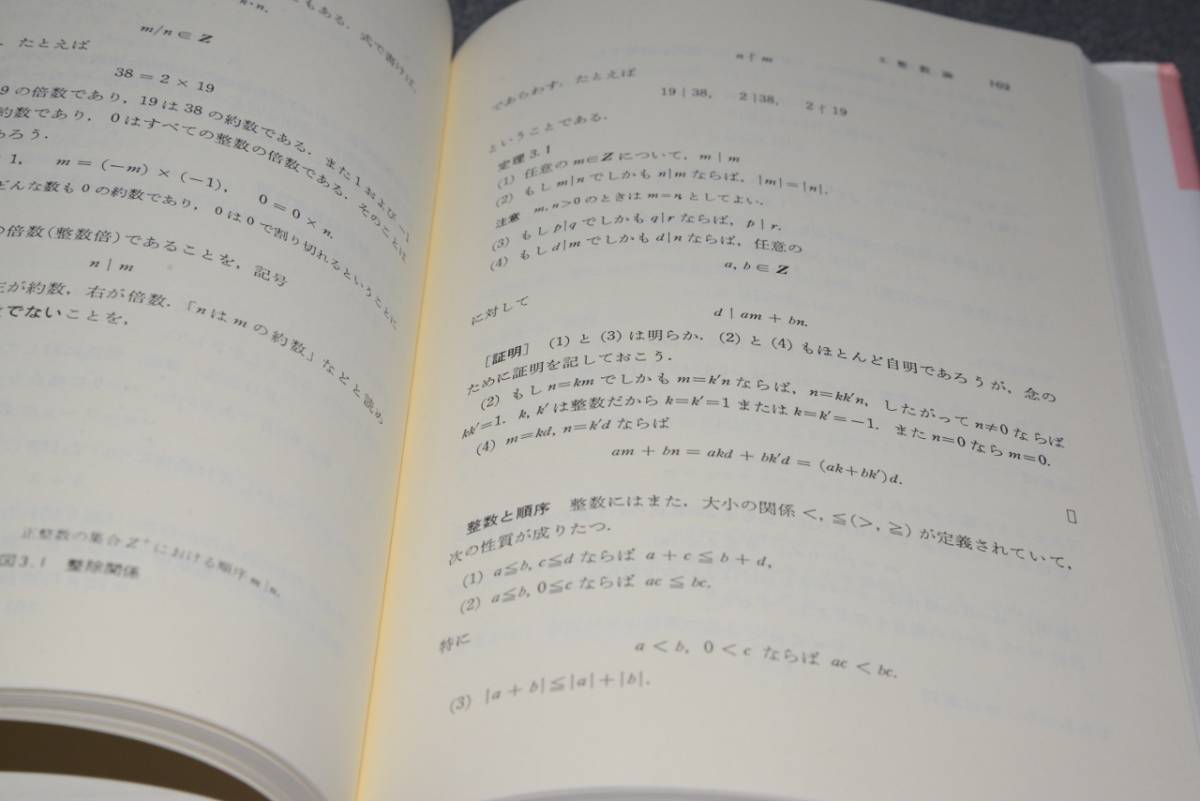 もある．式で書けば，
m/n∈Z
．たとえば
38＝2×19
9の倍数であり，19は38の約数である．また1および−1
約数であり，0はすべての整数の倍数である．そのことは
あろう．
1， m＝(−m)×(−1)， 0＝0×n．
どんな数も0の約数であり，0は0で割り切れるということに
の倍数(整数倍)であることを，記号
n｜m
左が約数，右が倍数．「nはmの約数」などと読め
でないことを，
正整数の集合Z⁺における順序m｜n．
図3.1 整除関係
3 整数論 169
n∤m
であらわす．たとえば
19｜38， 2｜38， 2∤19
ということである．
定理3.1
(1) 任意のm∈Zについて，m｜m
(2) もしm｜nでしかもn｜mならば，|m|＝|n|．
注意 m, n>0のときはm＝nとしてよい．
(3) もしp｜qでしかもq｜rならば，p｜r．
(4) もしd｜mでしかもd｜nならば，任意の
a, b∈Z
に対して
d｜am＋bn．
［証明］ (1)と(3)は明らか．(2)と(4)もほとんど自明であろうが，念の
ために証明を記しておこう．
(2) もしn＝kmでしかもm＝k′nならば，n＝kk′n，したがってn≠0ならば
kk′＝1．k, k′は整数だからk＝k′＝1またはk＝k′＝−1．またn＝0ならm＝0．
(4) m＝kd, n＝k′dならば
am＋bn＝akd＋bk′d＝(ak＋bk′)d．
▯
整数と順序 整数にはまた，大小の関係<, ≦(>, ≧)が定義されていて，
次の性質が成りたつ．
(1) a≦b, c≦dならば a＋c≦b＋d，
(2) a≦b, 0≦cならば ac≦bc．
特に
a<b, 0<cならば ac<bc．
(3) |a＋b|≦|a|＋|b|．